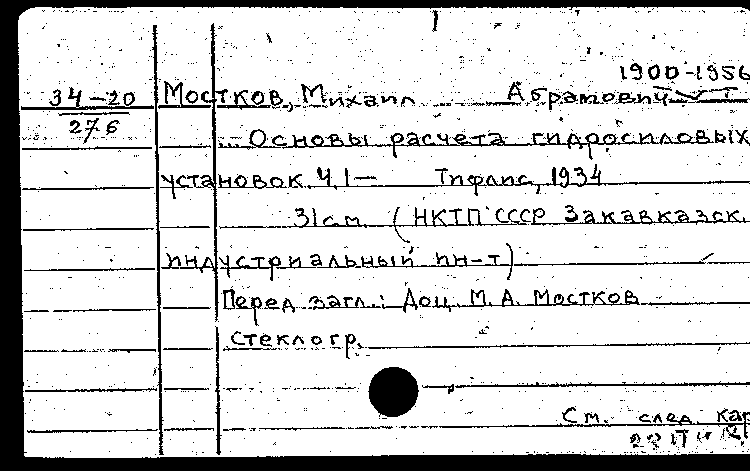 1900-1956
34-20 Мостков, Михаил Абрамович
276
Основы расчета гидросиловых
установок. Ч. I — Тифлис, 1934
31 см. (НКТП СССР Закавказск.
индустриальный ин-т)
Перед загл.: Доц. М. А. Мостков
Стеклогр.
См. след. кар